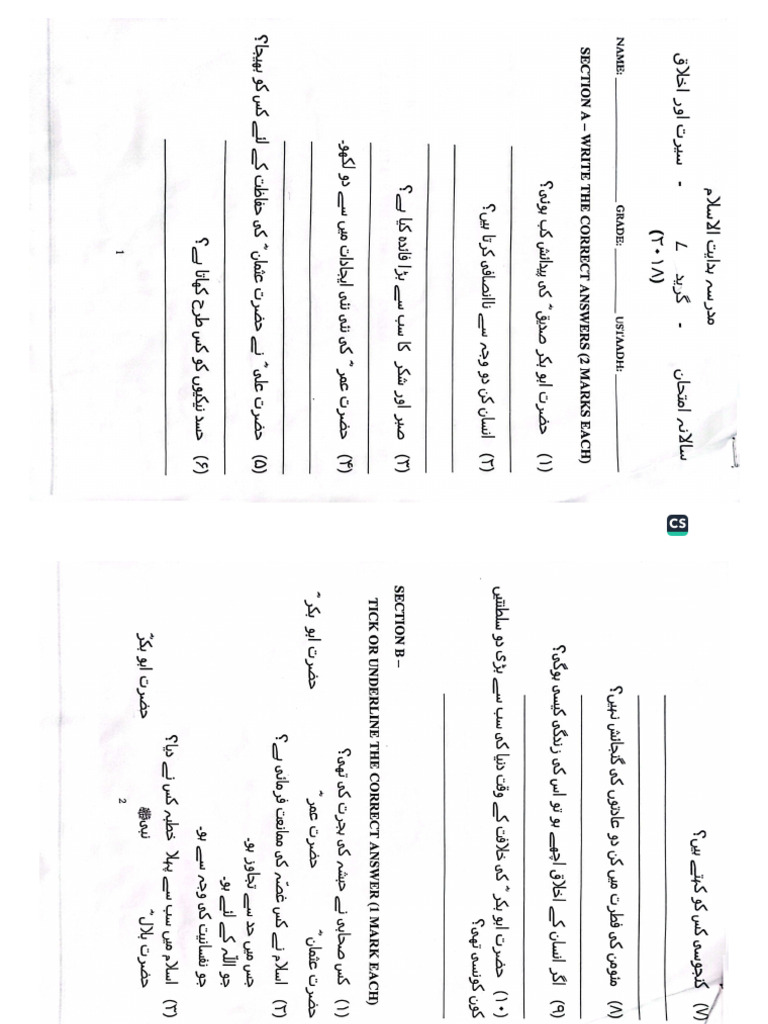 مدرسہ ہدایت الاسلام
سالانہ امتحان - گریڈ ۷ - سیرت اور اخلاق
(۲۰۱۸)
NAME: ____________ GRADE: ________ USTAADH: ____________
SECTION A – WRITE THE CORRECT ANSWERS (2 MARKS EACH)
(۱) حضرت ابو بکر صدیقؓ کی پیدائش کب ہوئی؟
(۲) انسان کن دو وجہ سے ناانصافی کرتا ہیں؟
(۳) صبر اور شکر کا سب سے بڑا فائدہ کیا ہے؟
(۴) حضرت عمرؓ کی نئی نئی ایجادات میں سے دو لکھو۔
(۵) حضرت علیؓ نے حضرت عثمانؓ کی حفاظت کے لئے کس کو بھیجا؟
(۶) حسد نیکیوں کو کس طرح کھاتا ہے؟
1
CS
(۷) کنجوسی کس کو کہتے ہیں؟
(۸) مئومن کی فطرت میں کن دو عادتوں کی گنجائش نہیں؟
(۹) اگر انسان کے اخلاق اچھے ہو تو اس کی زندگی کیسی ہوگی؟
(۱۰) حضرت ابو بکرؓ کی خلافت کے وقت دنیا کی سب سے بڑی دو سلطنتیں
کون کونسی تھی؟
SECTION B –
TICK OR UNDERLINE THE CORRECT ANSWER (1 MARK EACH)
(۱) کس صحابی نے حبشہ کی ہجرت کی تھی؟
حضرت عثمانؓ حضرت عمرؓ حضرت ابو بکرؓ
(۲) اسلام نے کس غصّہ کی ممانعت فرمائی ہے؟
جس میں حد سے تجاوز ہو۔
جو اللّٰہ کے لئے ہو۔
جو نفسانیت کی وجہ سے ہو۔
(۳) اسلام میں سب سے پہلا خطبہ کس نے دیا؟
حضرت بلالؓ نبیﷺ حضرت ابو بکرؓ
2